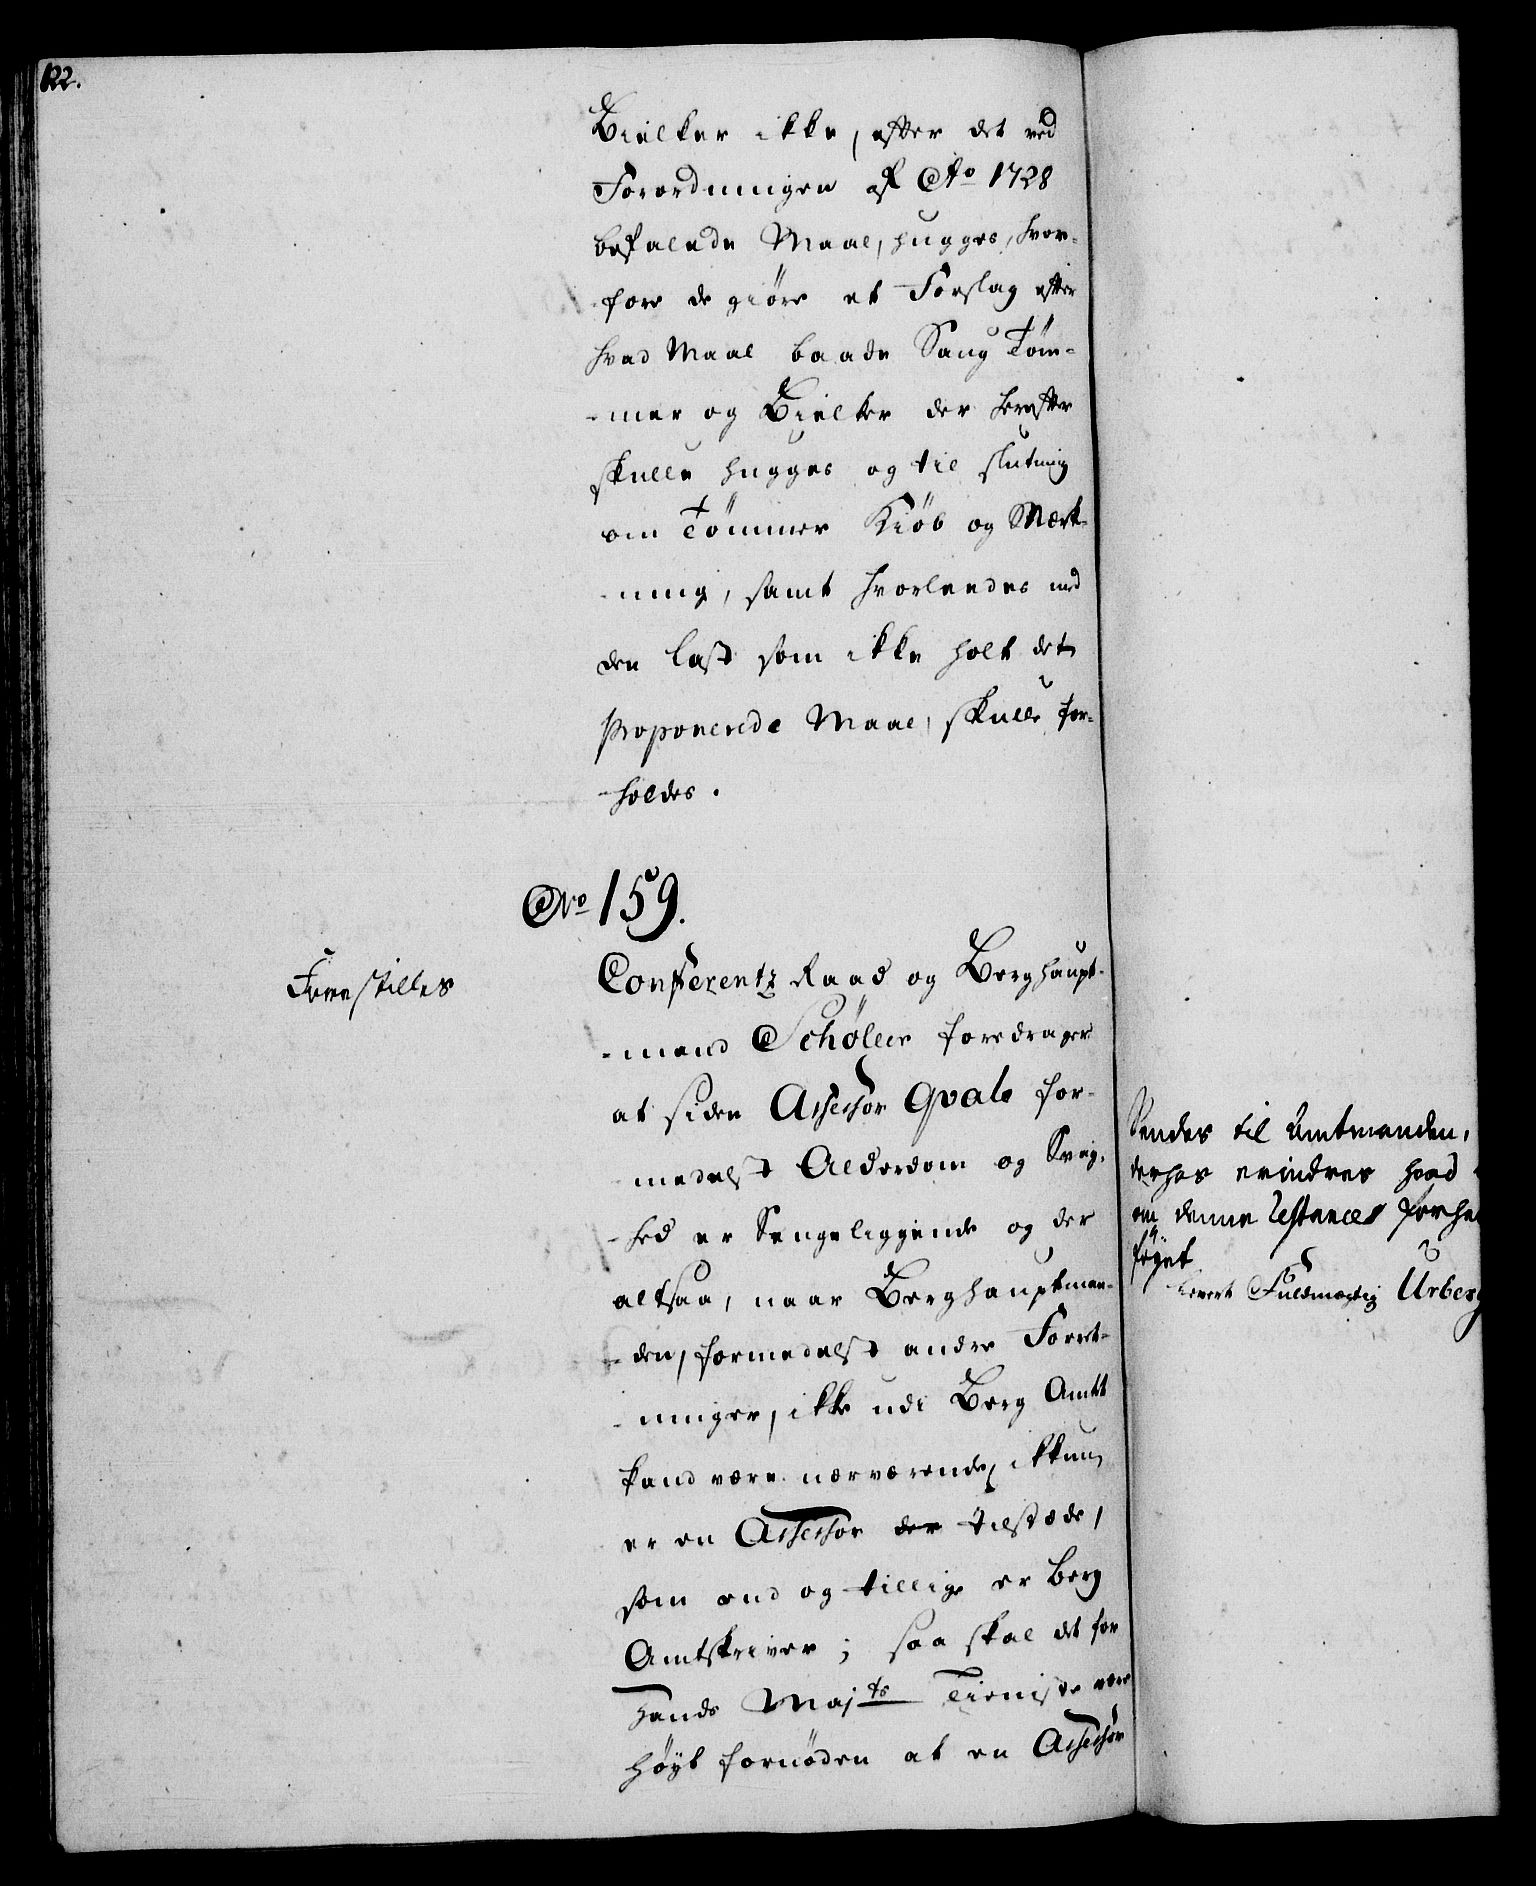 122.
Bielker ikke, efter det ved
Forordningen af Ao 1728
befalede Maal, hugges, hvor-
fore de giöre et Forslag efter
hvad Maal baade Saug Töm-
-mer og Bielker der herefter
skulle hugges og til slutning
om Tömmer Kiöb og Mærk-
-ning, samt hvorleedes med
den last som ikke holt det
Proponerede Maal, skulle for-
-holdes.
No 159.
Forestilles
Conferentz Raad og Berghaupt-
-mand Schøller foredrager
at siden Assessor Qvale for-
-medelst Alderdom og Svag-
-hed er Sengeliggende og der
altsaa, naar Berghauptman-
-den, formedelst andre Forret-
-ninger, ikke udi Berg Amtet
kand være nærværende, ikkun
er en Assessor der tilstæde,
som end og tillige er Berg
Amtskriver; saa skal det for
Hands Majts Tieniste være
höyt fornöden at en Assessor
Sendes til Amtmanden,
derhos erindres hvad
om denne
föyet
Levert Fuldmægtig Urberg